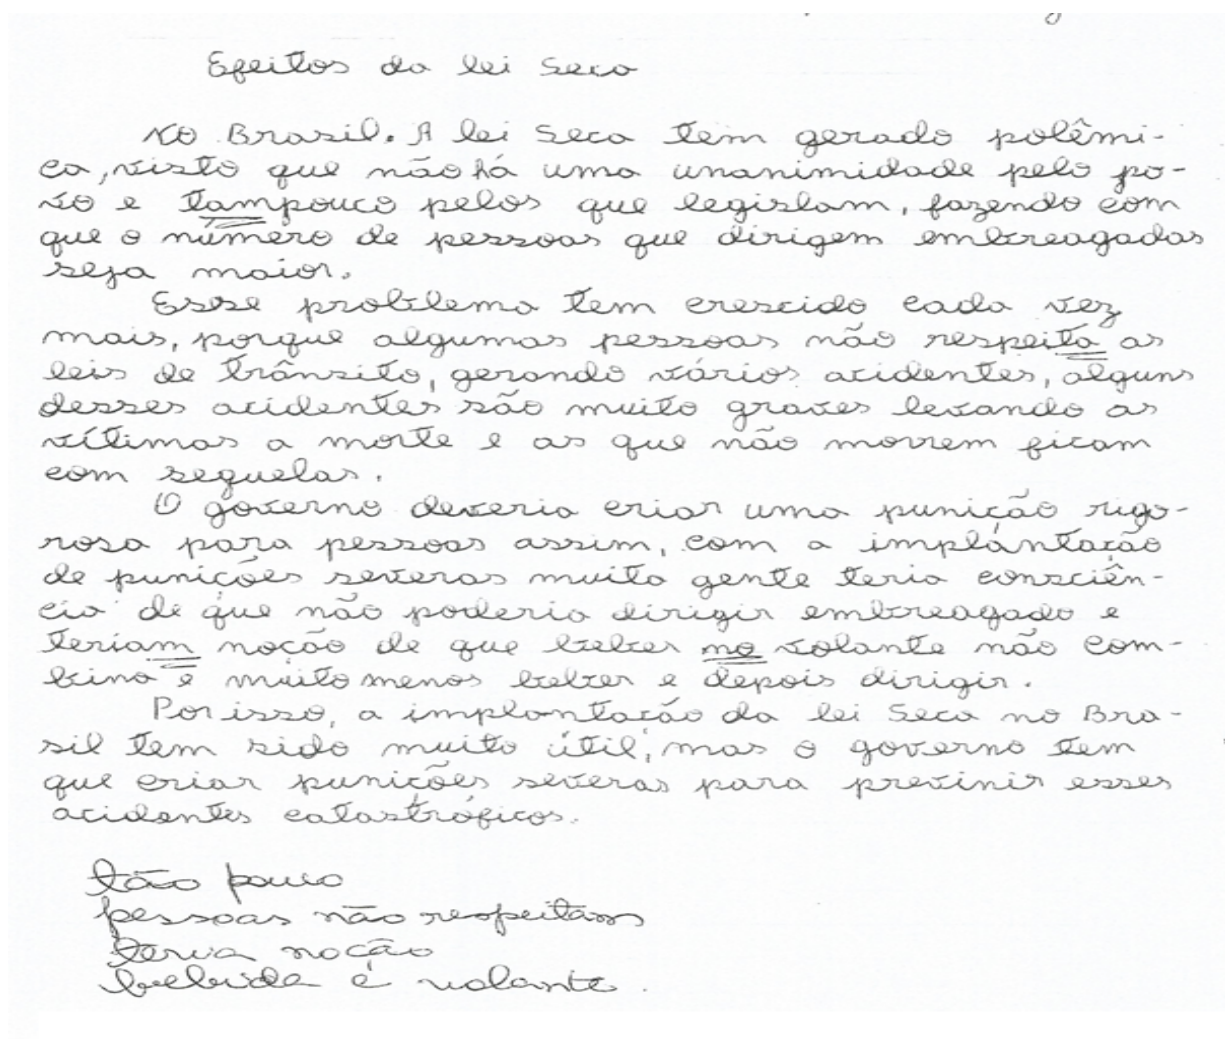 Efeitos da lei Seca
No Brasil. A lei Seca tem gerado polêmi-
ca, visto que não há uma unanimidade pelo po-
vo e tampouco pelos que legislam, fazendo com
que o número de pessoas que dirigem embreagadas
seja maior.
Esse problema tem crescido cada vez
mais, porque algumas pessoas não respeita as
leis de trânsito, gerando vários acidentes, alguns
desses acidentes são muito graves levando as
vítimas a morte e as que não morrem ficam
com sequelas.
O governo deveria criar uma punição rigo-
rosa para pessoas assim, com a implantação
de punições severas muita gente teria consciên-
cia de que não poderia dirigir embreagado e
teriam noção de que beber no volante não com-
bina e muito menos beber e depois dirigir.
Por isso, a implantação da lei Seca no Bra-
sil tem sido muito útil, mas o governo tem
que criar punições severas para previnir esses
acidentes catastróficos.
tão pouco
pessoas não respeitam
teria noção
bebida e volante.